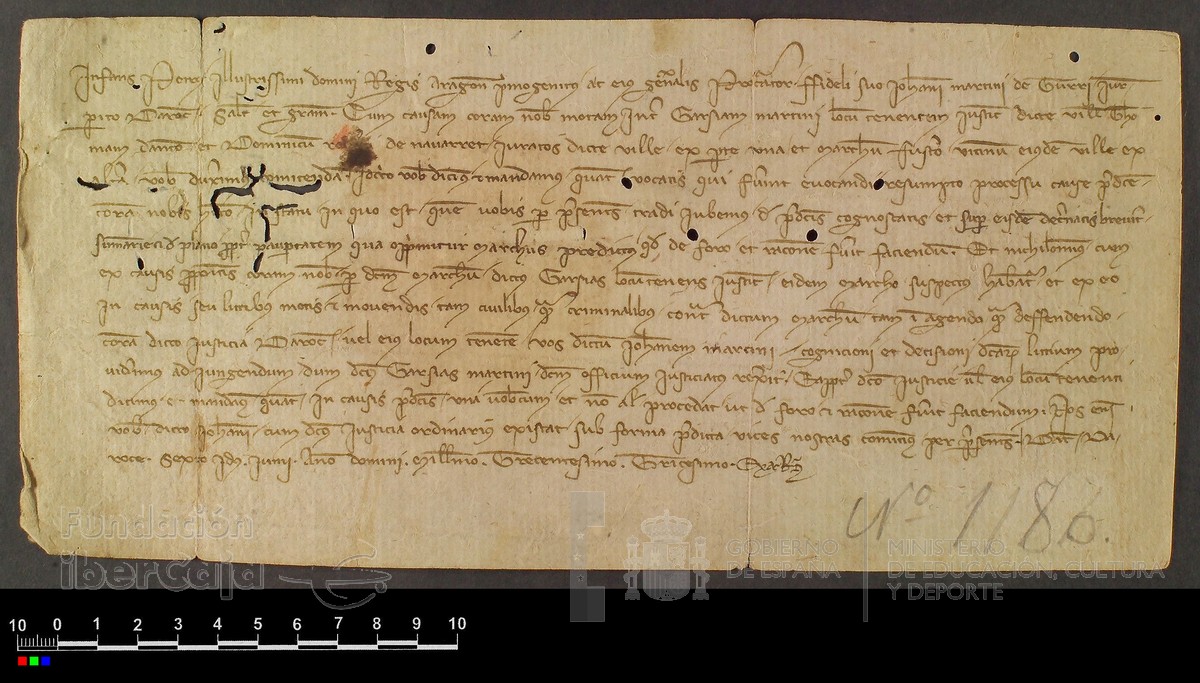 Infans Petrus Illustrissimi domini Regis Aragon primogenitus ac eius gnalis Procurator ffideli suo Johani martini de Gurri Jur
pito Daroc Salt et gram Cum causam coram nob motam int Garsiam martini locu tenentem Justic dicte ville Tho
mam dancto et Dominicu de navarret Juratos dicte ville ex pte una et March vicinu eiusde ville ex
alia vob duximus comitenda Idcirco vob dicimus et mandamus quat vocatis qui fuerint evocandi resumpto processu cause pdce
coram nobis in statu in quo est quem vobis per psentes tradi Jubemus de pdcis cognoscatis et super eisde
summarie et de plano ppt paupertatem qua opprimitur Marchus predictus qd de foro et racione fuit faciendum Et nichilominus cum
ex causis coram nob per dcm March dictus Garsias locu tenens Justic eidem Marcho suspectus habeat et ex eo
in causis seu litibus motis et movendis tam civilibus qm criminalibus cont dictum March tam in agendo qm deffendendo
cora dicto Justicia Daroc vel eius locum tenente vos dictu Johannem martini cognicioni et decisioni dcar litium pro
vidimus adjungendum dum dcs Garsias martini dcm officium Justiciatus rexit Eapt dco Justicie vl eius locu tenenti
dicimus et mandam quat in causis pdcis una vobcum et no al procedat ut de foro et racione fuit faciendum Nos eni
vob dicto Johani cum dcs Justicia ordinarius existat sub forma pdicta vices nostras comitimus per psentes Dat Da
roce Sexto Idus Junii Anno domini Millesimo Trecentesimo Tricesimo
Nº 1186.
Fundación
iberCaja
GOBIERNO
DE ESPAÑA
MINISTERIO
DE EDUCACIÓN, CULTURA
Y DEPORTE
10 0 1 2 3 4 5 6 7 8 9 10